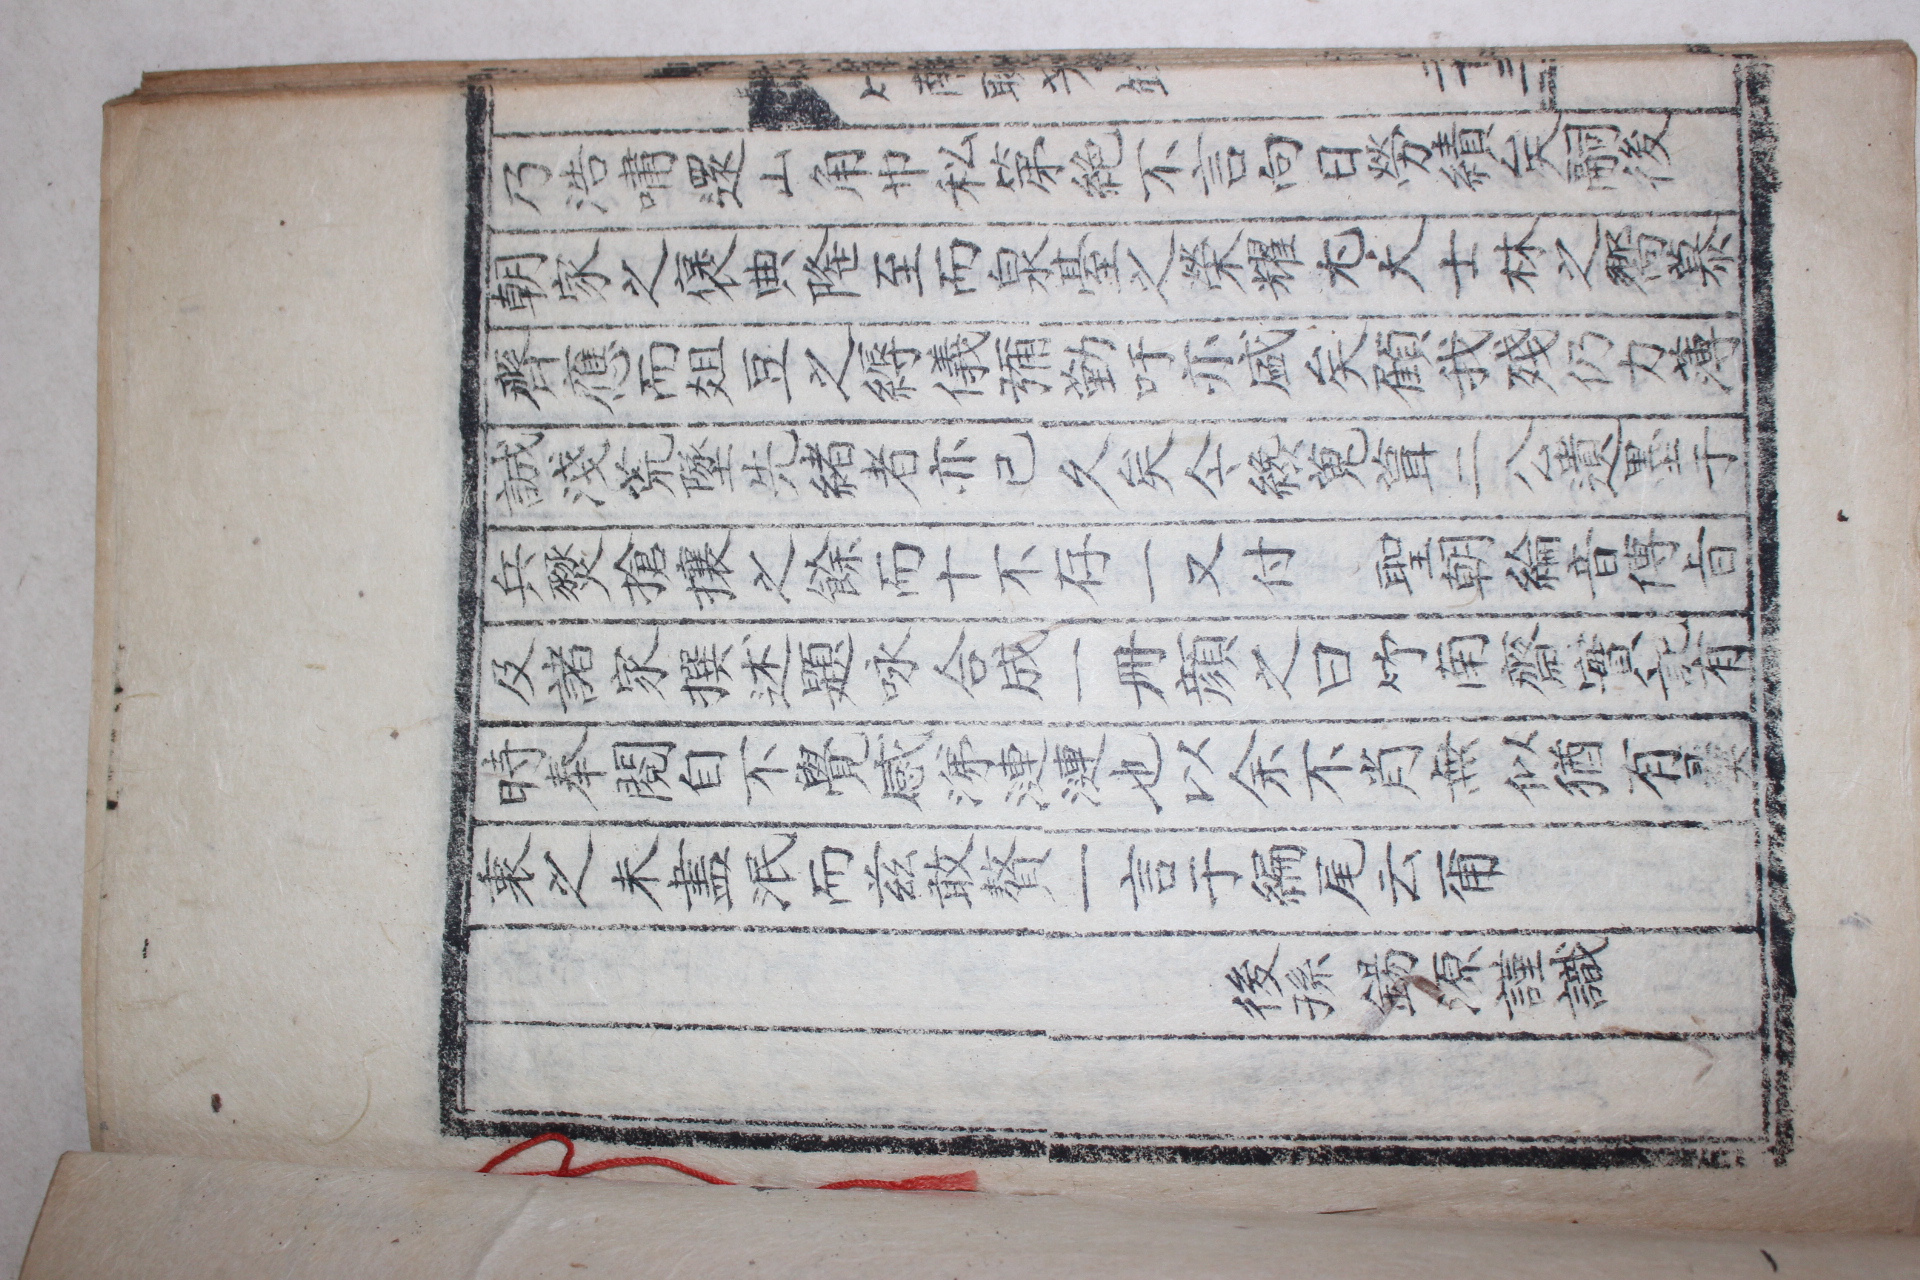 乃浩嘯還山角巾私第絶不言向日勞績矣嗣後
朝家之褒典隆至而泉臺之榮耀尤大士林之嚮慕
齊應而俎豆之縟儀彌勤吁亦盛矣顧我殘仍力薄
誠淺荒墜先緒者亦已久矣今纔蒐葺二公遺墨于
兵燹搶攘之餘而十不存一又付 聖朝綸音傳旨
及諸家撰述題咏合成一冊顔之曰竹南齋實記有
時奉閱自不覺感涕漣漣也以余不肖無似猶有彛
衷之未盡泯而玆敢贅一言于編尾云甭
後孫 錫源謹識
二十三